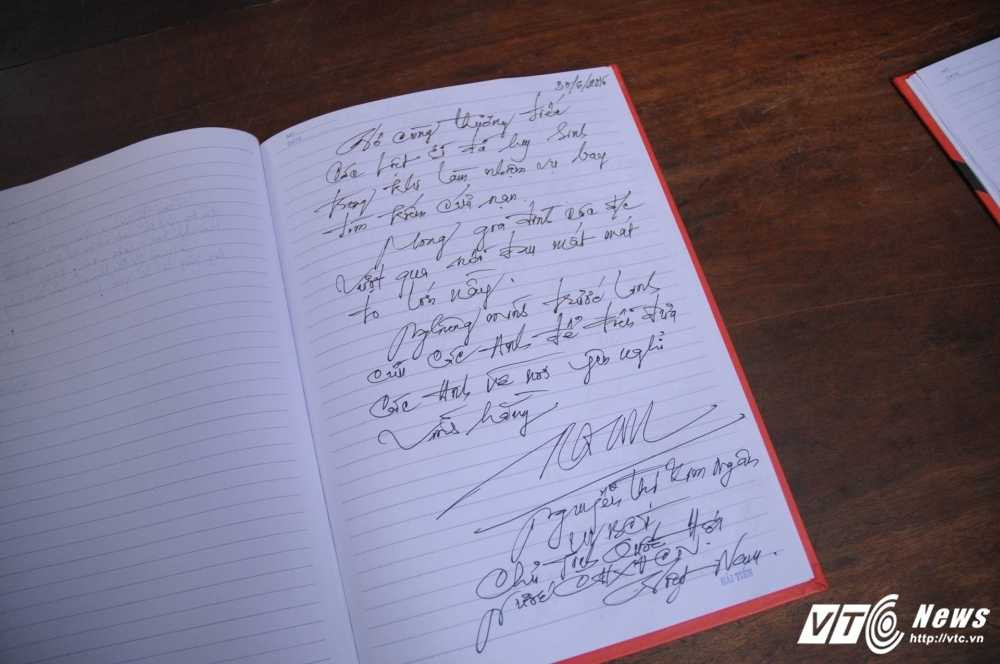 30/6/2016
Vô cùng thương tiếc
các liệt sĩ đã hy sinh
trong khi làm nhiệm vụ bay
tìm kiếm cứu nạn.
Mong gia đình các đ/c
vượt qua nỗi đau mất mát
to lớn này.
Nghiêng mình trước linh
cữu các Anh để tiễn đưa
các Anh về nơi yên nghỉ
vĩnh hằng
Nguyễn Thị Kim Ngân
UV BCT
Chủ Tịch Quốc Hội
Nước CHXHCN
Việt Nam.
HẢI TIẾN
VTC News
http://vtc.vn